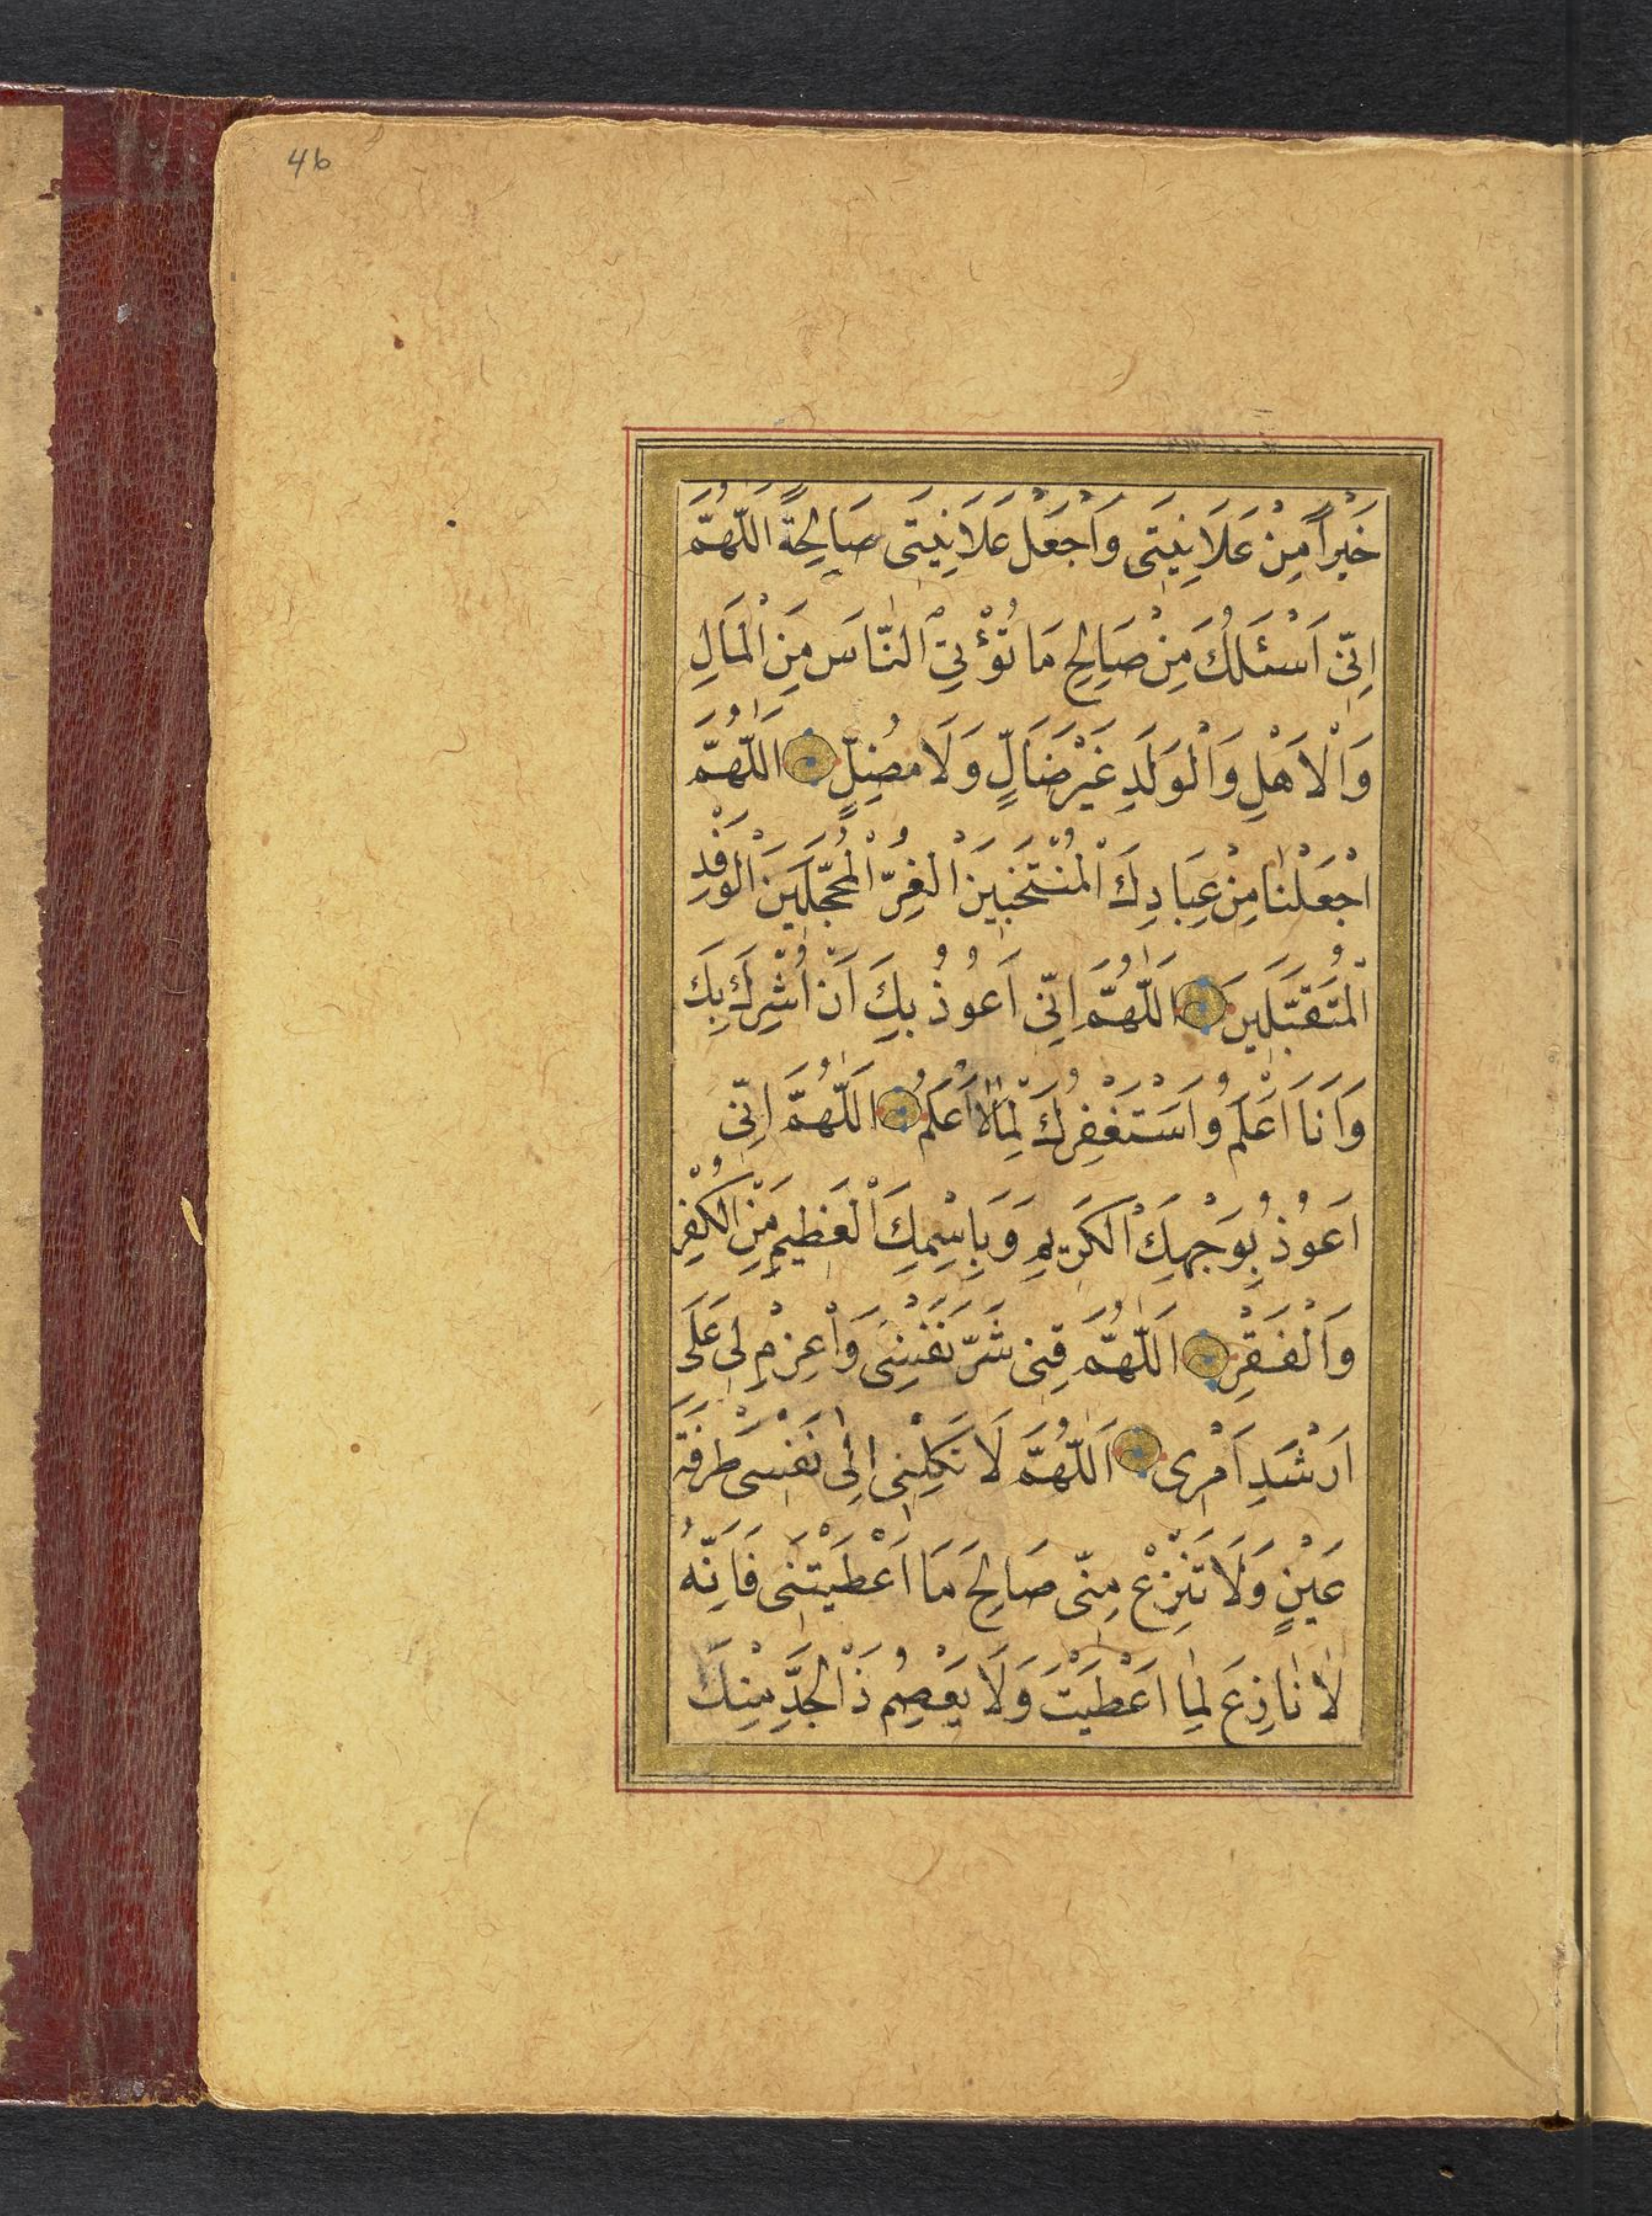 46
خَيْراً مِنْ عَلَانِيَتِى وَاجْعَلْ عَلَانِيَتِى صَالِحَةً اَللّٰهُمَّ
اِنِّى اَسْئَلُكَ مِنْ صَالِحِ مَا تُؤْتِى النَّاسَ مِنَ الْمَالِ
وَالْاَهْلِ وَالْوَلَدِ غَيْرَ ضَالٍّ وَلَا مُضِلٍّ اَللّٰهُمَّ
اجْعَلْنَا مِنْ عِبَادِكَ الْمُنْتَخَبِينَ الْغُرِّ الْمُحَجَّلِينَ الْوَفْدِ
الْمُتَقَبَّلِينَ اَللّٰهُمَّ اِنِّى اَعُوذُ بِكَ اَنْ اُشْرِكَ بِكَ
وَاَنَا اَعْلَمُ وَاَسْتَغْفِرُكَ لِمَا لَا اَعْلَمُ اَللّٰهُمَّ اِنِّى
اَعُوذُ بِوَجْهِكَ الْكَرِيمِ وَبِاسْمِكَ الْعَظِيمِ مِنَ الْكُفْرِ
وَالْفَقْرِ اَللّٰهُمَّ قِنِى شَرَّ نَفْسِى وَاعْزِمْ لِى عَلَى
اَرْشَدِ اَمْرِى اَللّٰهُمَّ لَا تَكِلْنِى اِلٰى نَفْسِى طَرْفَةَ
عَيْنٍ وَلَا تَنْزِعْ مِنِّى صَالِحَ مَا اَعْطَيْتَنِى فَاِنَّهُ
لَا نَازِعَ لِمَا اَعْطَيْتَ وَلَا يَعْصِمُ ذَا الْجَدِّ مِنْكَ